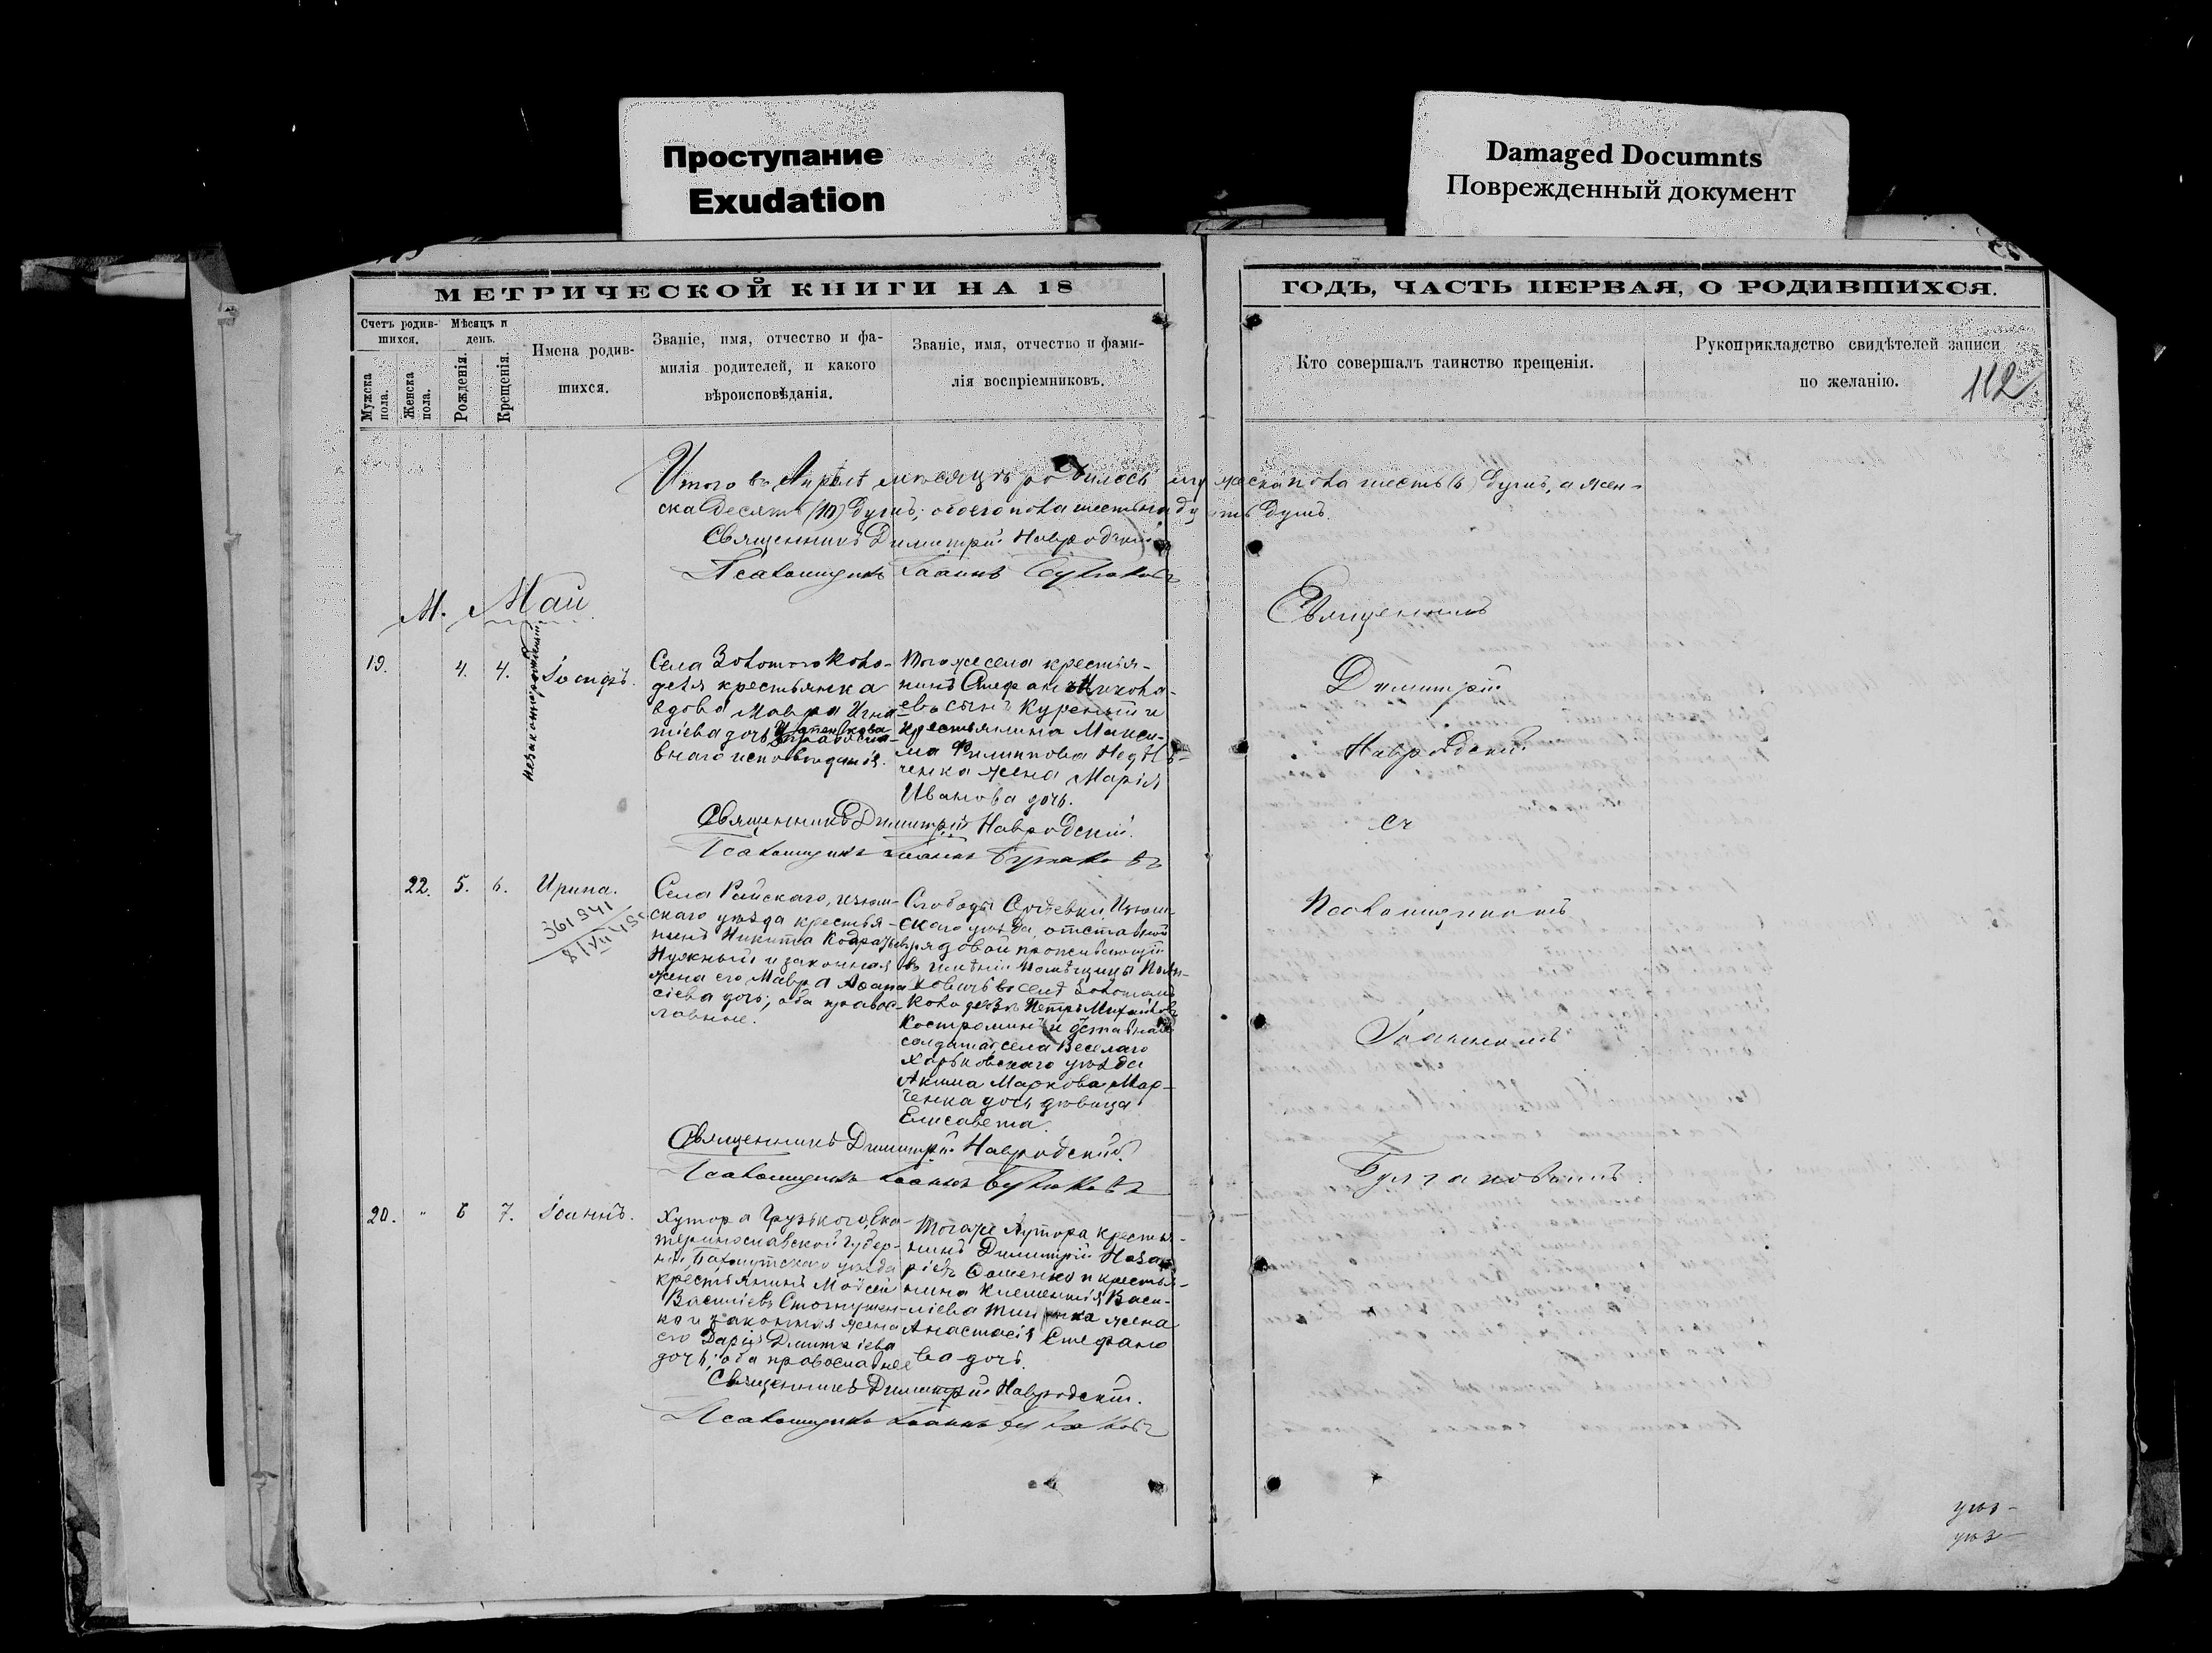 Проступание
Exudation
Damaged Documnts
Поврежденный документ
МЕТРИЧЕСКОЙ КНИГИ НА 18
ГОДЪ, ЧАСТЬ ПЕРВАЯ, О РОДИВШИХСЯ.
Счетъ родив-
шихся.
Мужска
пола.
Женска
пола.
Мѣсяцъ и
день.
Рожденія.
Крещенія.
Имена родив-
шихся.
Званіе, имя, отчество и фа-
милія родителей, и какого
вѣроисповѣданія.
Званіе, имя, отчество и фами-
лія воспріемниковъ.
Кто совершалъ таинство крещенія.
Рукоприкладство свидѣтелей записи
по желанію.
112
Итого въ Апрѣлѣ мѣсяцѣ родилось мужеска пола шесть (6) душъ, а жен-
ска десять (10) душъ; обоего пола шестнадцать душъ.
Священникъ Димитрій Навродскій
Псаломщикъ Іоаннъ
М. Май
19.
4.
4.
незаконнорожденный
Іосифъ.
Села Золотого Коло-
дезя крестьянка
вдова Мавра Игна-
тіева дочь
православ-
наго исповѣданія.
Того же села крестья-
нинъ Стефанъ Никола-
евъ сынъ Куренный и
крестьянина Макси-
ма Филиппова Недѣль-
ченка жена Марія
Иванова дочь.
Священникъ Димитрій Навродскій.
Псаломщикъ Іоаннъ
22.
5.
6.
Ирина.
361941
Села Райскаго, Изюм-
скаго уѣзда крестья-
нинъ Никита
Нужный и законная
жена его Мавра Аѳана-
сіева дочь; оба правос-
лавные.
Слободы Изюм-
скаго уѣзда, отставной
рядовой проживающій
въ имѣніи помѣщицы
въ селѣ Золотомъ
Колодезѣ Петръ Михайловъ
Костроминъ и отставнаго
солдата села Веселаго
Харьковскаго уѣзда
Акима Маркова Мар-
ченка дочь дѣвица
Елисавета.
Священникъ Димитрій Навродскій.
Псаломщикъ Іоаннъ
20.
"
6
7.
Іоаннъ.
Хутора Грузького, Ека-
теринославской Губер-
ніи, Бахмутскаго уѣзда
крестьянинъ Моѵсей
Василіевъ
и законная жена
его Дарія Димитріева
дочь; оба православные
Тогоже Хутора крестья-
нинъ Димитрій Наза-
ріевъ и крестья-
нина Климентія Васи-
ліева жена
Анастасія Стефано
ва дочь.
Священникъ Димитрій Навродскій.
Псаломщикъ Іоаннъ
Священникъ
Димитрій
Навродскій
съ
Псаломщикомъ
Іоанномъ
уѣз-
уѣз-